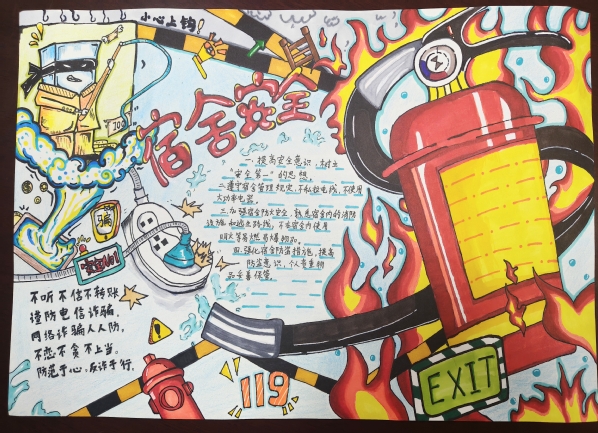 小心上钩!
宿舍安全
100
一.提高安全意识,树立
"安全第一"的思想。
二.遵守宿舍管理规定,不私拉电线,不使用
大功率电器。
三.加强宿舍防火安全,熟悉宿舍内的消防
设施和逃生路线,不在宿舍内使用
明火等易燃易爆物品。
四.强化宿舍防盗措施,提高
防盗意识,个人贵重物
品妥善保管。
骗
不听不信不转账
谨防电信诈骗,
网络诈骗人人防,
不恋不贪不上当。
防范于心,反诈于行,
119
EXIT